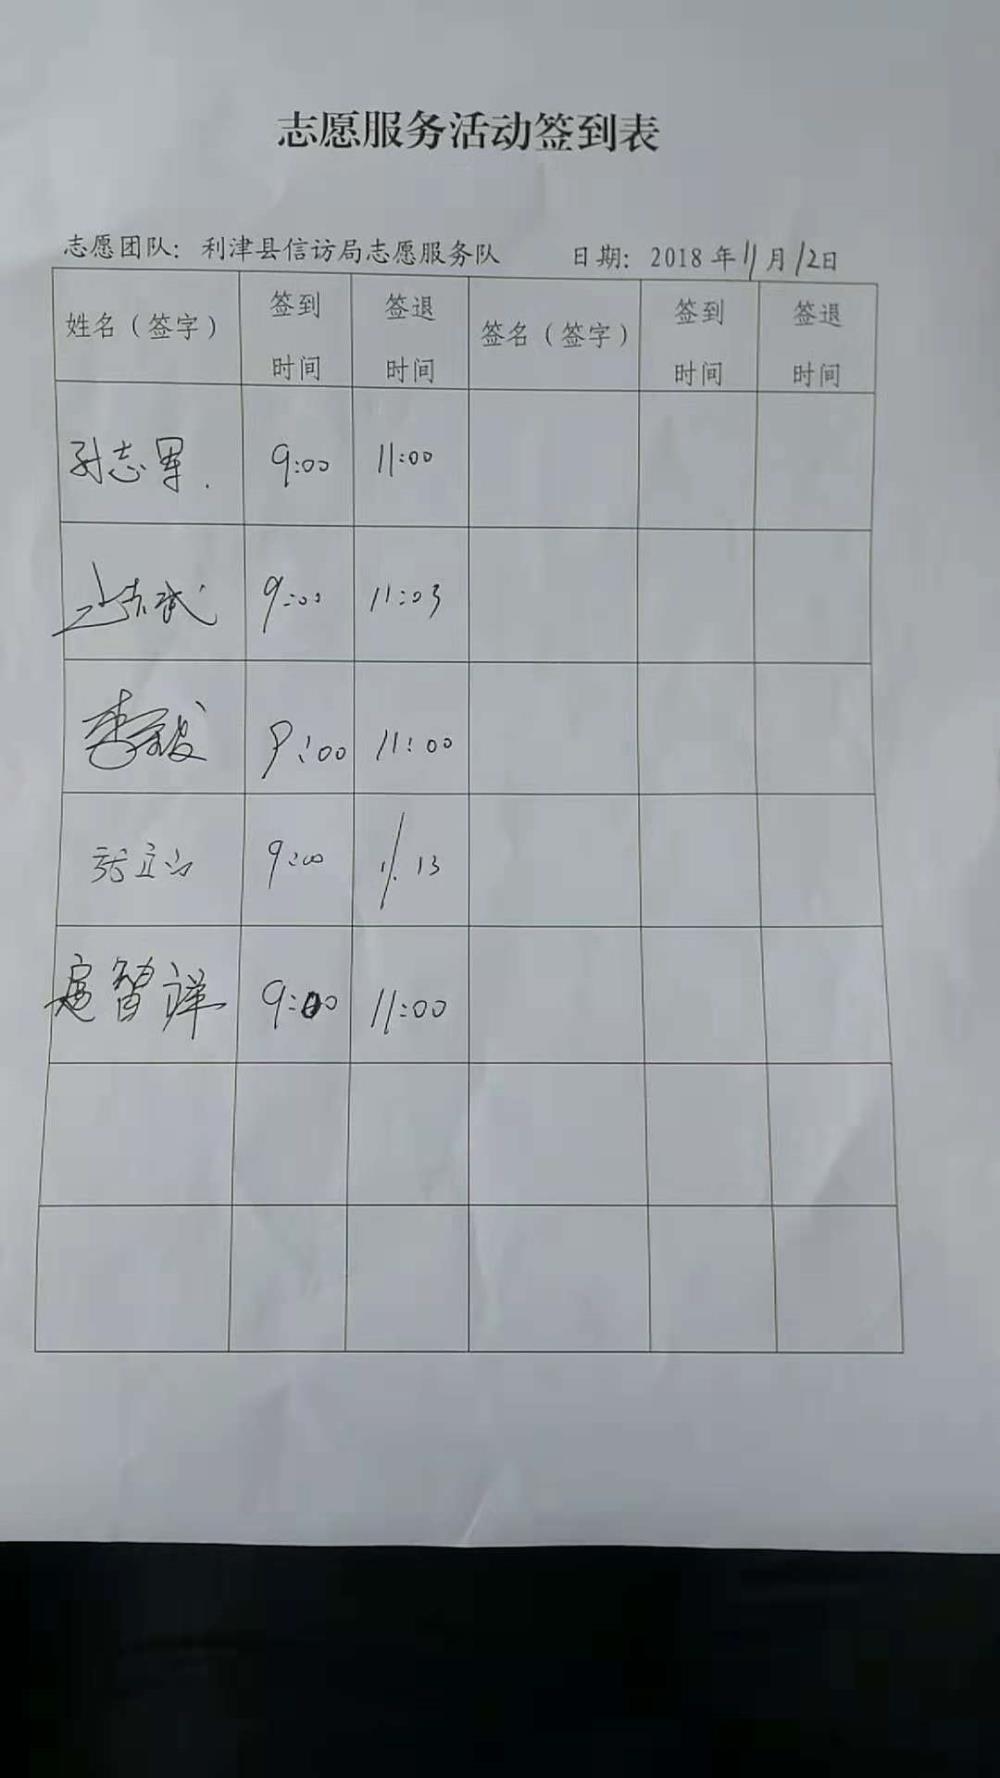 志愿服务活动签到表
志愿团队：利津县信访局志愿服务队 日期：2018年11月12日
姓名（签字） 签到时间 签退时间 签名（签字） 签到时间 签退时间
孙志军. 9:00 11:00
9:00 11:03
9:00 11:00
9:00 11.13
扈智祥 9:00 11:00